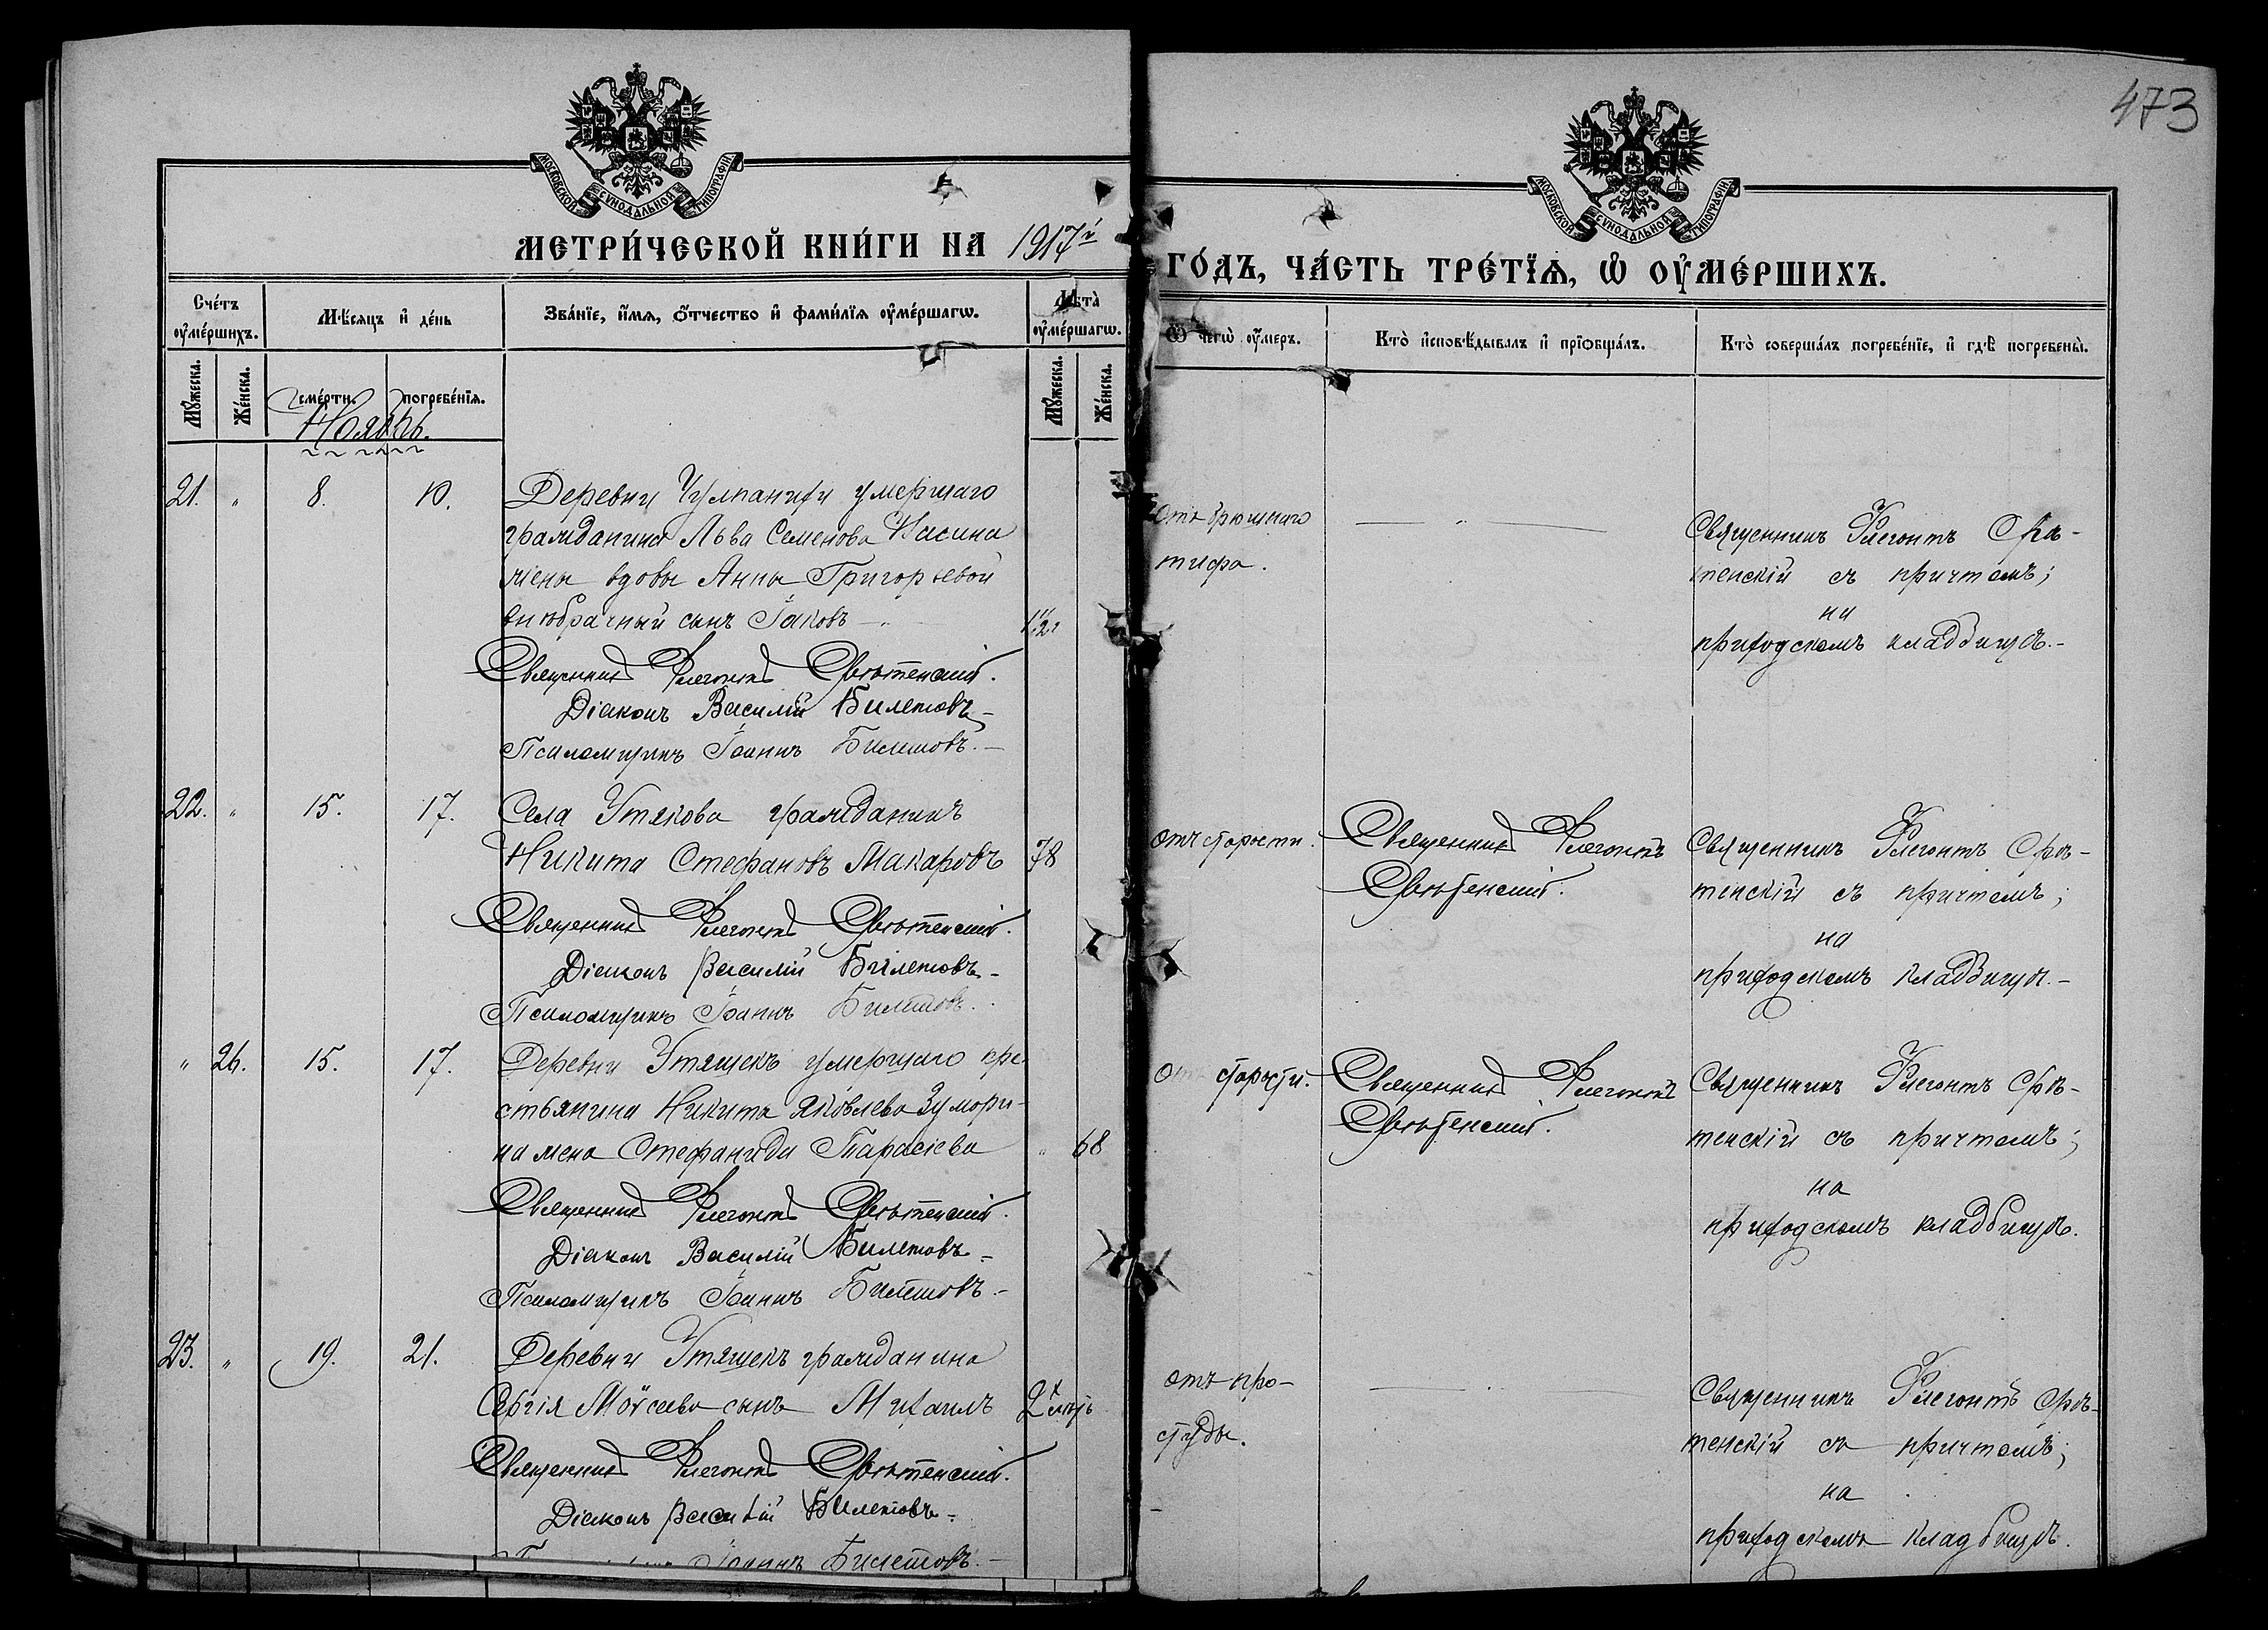 473
МОСКОВСКОЙ СѴНОДАЛЬНОЙ ТИПОГРАФІИ
МОСКОВСКОЙ СѴНОДАЛЬНОЙ ТИПОГРАФІИ
МЕТРИ́ЧЕСКОЙ КНИ́ГИ НА 1917й
ГО́ДЪ, ЧА́СТЬ ТРЕ́ТЇѦ, Ѡ҆ ОУ҆МЕ́РШИХЪ.
Сче́тъ оу҆ме́ршихъ.
Мꙋ́жеска.
Же́нска.
Мѣ́сяцъ и҆ де́нь
сме́рти.
погребе́нїя.
Зва́нїе, и҆́мя, ѻ҆́тчество и҆ фами́лїя оу҆ме́ршагѡ.
Лѣта̀ оу҆ме́ршагѡ.
Мꙋ́жеска.
Же́нска.
Ѿ чегѡ̀ оу҆́меръ.
Кто̀ и҆сповѣ́дывалъ и҆ прїѡбща́лъ.
Кто̀ соверша́лъ погребе́нїе, и҆ гдѣ̀ погребены̀.
Ноябрь.
21. " 8. 10. Деревни Чулпанихи умершаго
гражданина Льва Семенова
жены вдовы Анны Григорьевой
внѣбрачный сынъ Іаковъ —
Священникъ Флегонтъ Срѣтенскій.
Діаконъ Василій Билетовъ
Псаломщикъ Іоаннъ Билетовъ.
отъ брюшнаго
тифа.
— " —
Священникъ Флегонтъ Срѣ-
тенскій съ причтомъ;
на
приходскомъ кладбищѣ.
22. " 15. 17. Села Утякова гражданинъ
Никита Стефановъ Макаровъ 78
Священникъ Флегонтъ Срѣтенскій.
Діаконъ Василій Билетовъ
Псаломщикъ Іоаннъ Билетовъ.
отъ старости.
Священникъ Флегонтъ
Срѣтенскій.
Священникъ Флегонтъ Срѣ-
тенскій съ причтомъ;
на
приходскомъ кладбищѣ.
" 26. 15. 17. Деревни Утяшекъ умершаго кре-
стьянина Никиты Яковлева Зумори-
на жена Стефанида Тарасіева " 68
Священникъ Флегонтъ Срѣтенскій.
Діаконъ Василій Билетовъ
Псаломщикъ Іоаннъ Билетовъ.
отъ старости.
Священникъ Флегонтъ
Срѣтенскій.
Священникъ Флегонтъ Срѣ-
тенскій съ причтомъ;
на
приходскомъ кладбищѣ.
23. " 19. 21. Деревни Утяшекъ гражданина
Сергія Моѵсеева сынъ Михаилъ 2хъ
Священникъ Флегонтъ Срѣтенскій.
Діаконъ Василій Билетовъ
Іоаннъ Билетовъ.
отъ про-
студы.
Священникъ Флегонтъ Срѣ-
тенскій съ причтомъ;
на
приходскомъ кладбищѣ.